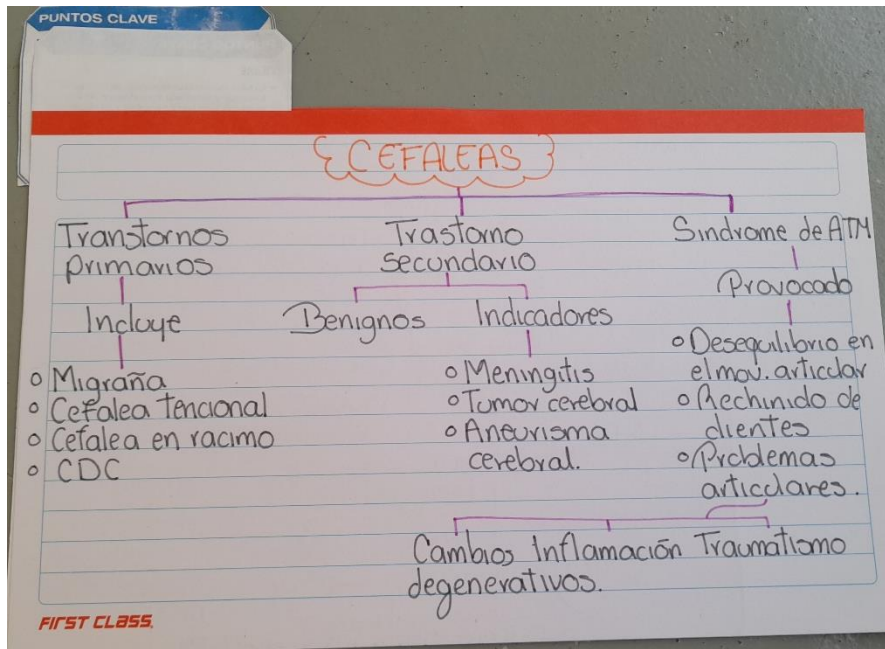 PUNTOS CLAVE
CEFALEAS
Transtornos
primarios
Incluye
Migraña
Cefalea tencional
Cefalea en racimo
CDC
Trastorno
secundario
Benignos
Indicadores
Meningitis
Tumor cerebral
Aneurisma
cerebral.
Sindrome de ATM
Provocado
Desequilibrio en
el mov. articular
Rechinido de
dientes
Problemas
articulares.
Cambios
degenerativos.
Inflamación
Traumatismo
FIRST CLASS